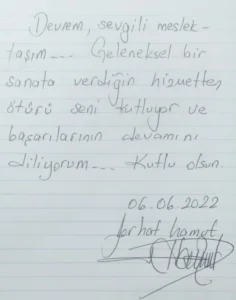 Devrem, sevgili meslek-
taşım--- Geleneksel bir
sanata verdiğin hizmetten
ötürü seni kutluyor ve
başarılarının devamını
diliyorum--- Kutlu olsun.
06.06.2022